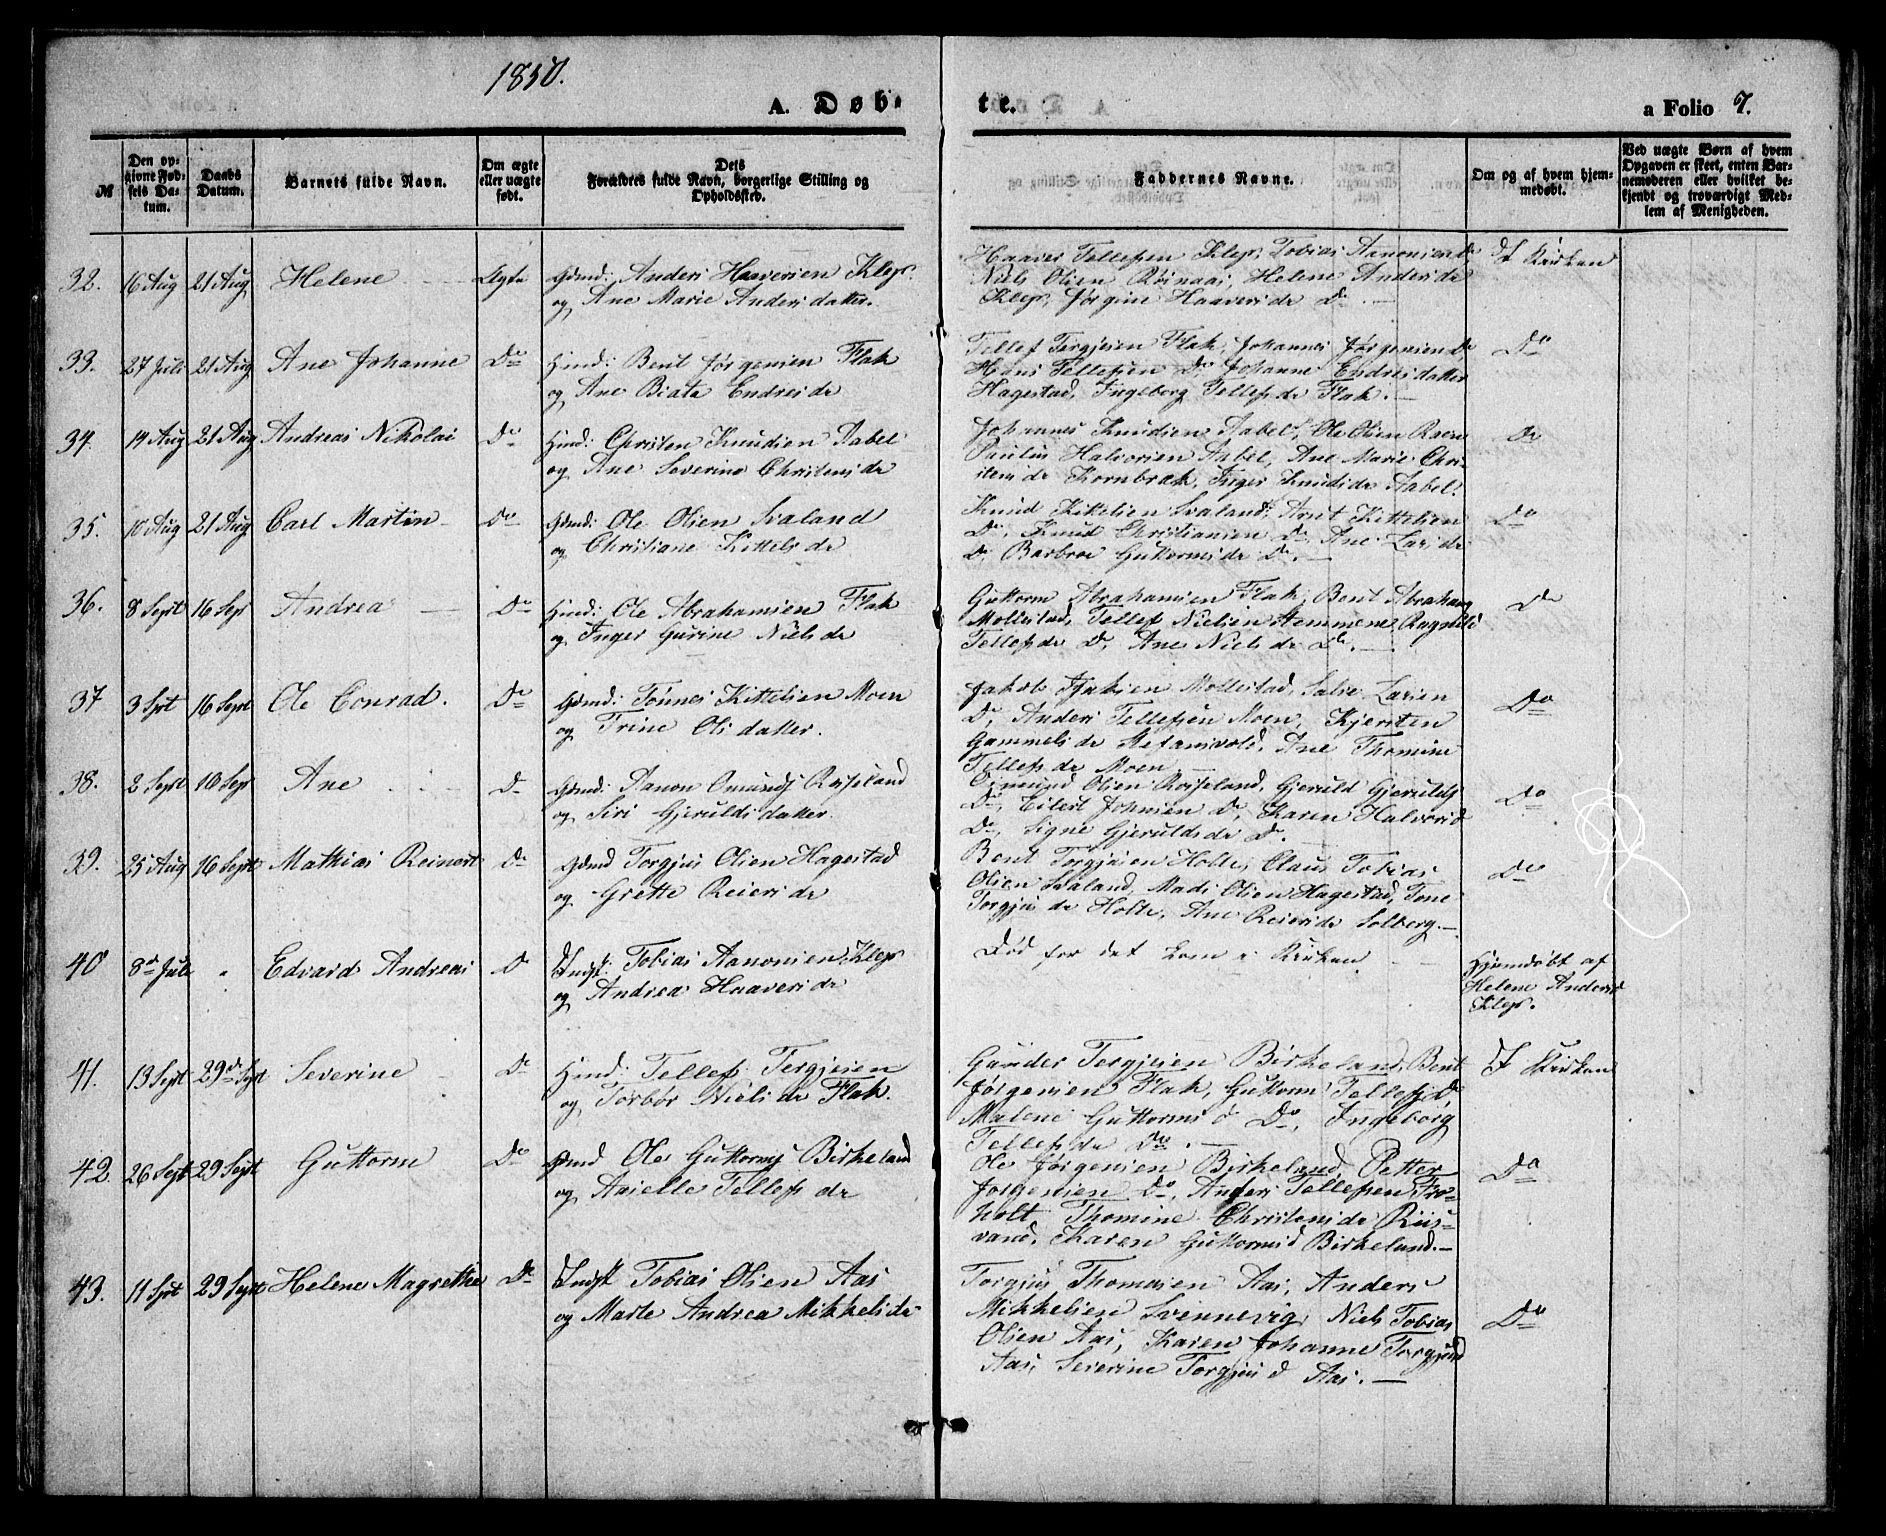 1850.
A. Døb-
te.
a Folio 7.
№
Den op-
givne Fød-
sels Da-
tum.
Daabs
Datum.
Barnets fulde Navn.
Om ægte
eller uægte
født.
Dets
Forældres fulde Navn, borgerlige Stilling og
Opholdssted.
Faddernes Navne.
Om og af hvem hjem-
medøbt.
Ved uægte Børn af hvem
Opgaven er skeet, enten Bar-
nemoderen eller hvilket be-
kjendt og troværdigt Med-
lem af Menigheden.
32. 16 Aug 21 Aug Helene Ægte Gdmd: Anders Haaversen Klep
og Ane Marie Andersdatter.
Haaver Tellefsen Klep, Tobias Aanonsen Do
Niels Olsen Røinaas, Helene Anders dr
Klep, Jørgine Haavers dr Do. —
I Kirken
33. 27 Juli 21 Aug Ane Johanne Do Huusmd: Bent Jørgensen Flak
og Ane Biata Endres dr
Tellef Tergjesen Flak, Johannes Jørgensen Do
Hans Tellefsen Do Johanne Endresdatter
Hagestad, Ingeborg Tellefs dr Flak. —
Do
34. 14 Aug 21 Aug Andreas Nikolai Do Huusmd: Christen Knudsen Aabel
og Ane Severine Christens dr
Johannes Knudsen Aabel, Ole Olsen Raen
Paulus Halvorsen Aabel, Ane Marie Chri-
stens dr Kornbræk, Inger Knuds dr Aabel.
Do
35. 10 Aug 21 Aug Carl Martin Do Gdmd: Ole Olsen Svaland
og Christiane Kittels dr
Knud Kittelsen Svaland, Arnt Kittelsen
Do, Knud Christiansen Do, Ane Lars dr
Do Barbroe Guttorms dr Do. —
Do
36. 8 Sept 16 Sept Andrea Do Huusmd: Ole Abrahamsen Flak
og Inger Gurine Niels dr
Guttorm Abrahamsen Flak, Bent Abrahams
Mollestad, Tellef Nielsen Hemmene Ragnild
Tellefs dr Do, Ane Niels dr Do. —
Do
37 3 Sept 16 Sept Ole Conrad. Do Gdmd: Tønnes Kittelsen Moen
og Trine Olsdatter.
Jakob Isaksen Mollestad, Salve Larsen
Do, Anders Tellefsen Moen, Kjersten
Gammels dr Stefansvold, Ane Thomine
Tellefs dr Moen —
Do
38. 2 Sept 16 Sept Ane Do Gdmd: Aanon Omunds Rosseland
og Siri Gjeruldsdatter.
Osmund Olsen Rosseland, Gjeruld Gjerulds
Do, Eilert Johnsen Do, Karen Halvors d
Do, Signe Gjerulds dr Do. —
Do
39. 25 Aug 16 Sept Mathias Reinert Do Gdmd Torgjus Olsen Hagestad
og Grette Reiers dr
Bent Torgjusen Holte, Claus Tobias
Olsen Svaland, Mads Olsen Hagestad, Tone
Torgjus dr Holte, Ane Reiers dr Solberg. —
Do
40 8d Juli " Edvard Andreas Do Indst: Tobias Aanonsen Klep
og Andrea Haavers dr
Død før det kom i Kirken
Hjemdøbt af
Helene Andersd
Klep.
41. 13 Sept 29d Sept Severine Do Huusmd: Tellef Tergjesen
og Torbor Niels dr Flak.
Gunder Tergjesen Birkeland, Bent
Jørgensen Flak, Guttorm Tellefs Do
Malene Guttorms d Do, Ingeborg
Tellefs dr Do. —
I Kirken
42. 26 Sept 29 Sept Guttorm Do Gdmd Ole Guttorms Birkeland
og Asielle Tellefs dr
Ole Jørgensen Birkeland, Petter
Jørgensen Do, Anders Tellefsen Fro-
holt Thomine Christens dr Riis-
vand, Karen Guttorms d Birkeland. —
Do
43. 11 Sept 29 Sept Helene Magrethe Do Indst Tobias Olsen Aas
og Marte Andrea Mikkels dr
Torgjus Thomasen Aas, Anders
Mikkelsen Svennevig, Niels Tobias
Olsen Aas, Karen Johanne Torgjusd
Aas, Severine Torgjus d Aas. —
Do